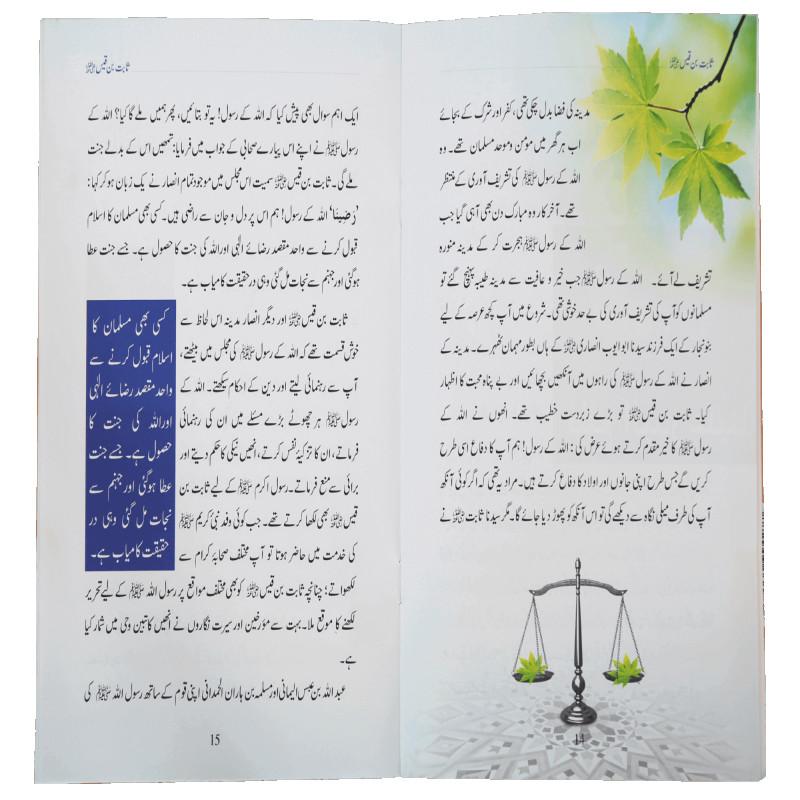 ثابت بن قیس رضی اللہ عنہ
مدینہ کی فضا بدل چکی تھی، کفر اور شرک کے بجائے
اب ہر گھر میں مؤمن و موحد مسلمان تھے۔ وہ
اللہ کے رسول ﷺ کی تشریف آوری کے منتظر
تھے۔ آخر کار وہ مبارک دن بھی آ ہی گیا جب
اللہ کے رسول ﷺ ہجرت کر کے مدینہ منورہ
تشریف لے آئے۔ اللہ کے رسول ﷺ جب خیر و عافیت سے مدینہ طیبہ پہنچ گئے تو
مسلمانوں کو آپ کی تشریف آوری کی بے حد خوشی تھی۔ شروع میں آپ کچھ عرصہ کے لیے
بنو نجار کے ایک فرزند سیدنا ابو ایوب انصاری رضی اللہ عنہ کے ہاں بطور مہمان ٹھہرے۔ مدینہ کے
انصار نے اللہ کے رسول ﷺ کی راہوں میں آنکھیں بچھائیں اور بے پناہ محبت کا اظہار
کیا۔ ثابت بن قیس رضی اللہ عنہ تو بڑے زبردست خطیب تھے۔ انھوں نے اللہ کے
رسول ﷺ کا خیر مقدم کرتے ہوئے عرض کی: اللہ کے رسول! ہم آپ کا دفاع اسی طرح
کریں گے جس طرح اپنی جانوں اور اولاد کا دفاع کرتے ہیں۔ مراد یہ تھی کہ اگر کوئی آنکھ
آپ کی طرف میلی نگاہ سے دیکھے گی تو اس آنکھ کو پھوڑ دیا جائے گا۔ مگر سیدنا ثابت رضی اللہ عنہ نے
14
ثابت بن قیس رضی اللہ عنہ
ایک اہم سوال بھی پیش کیا کہ اللہ کے رسول! یہ تو بتائیں، پھر ہمیں ملے گا کیا؟ اللہ کے
رسول ﷺ نے اپنے اس پیارے صحابی کے جواب میں فرمایا: تمھیں اس کے بدلے جنت
ملے گی۔ ثابت بن قیس رضی اللہ عنہ سمیت اس مجلس میں موجود تمام انصار نے یک زبان ہو کر کہا:
’رَضِينَا‘ اللہ کے رسول! ہم اس پر دل و جان سے راضی ہیں۔ کسی بھی مسلمان کا اسلام
قبول کرنے سے واحد مقصد رضائے الٰہی اور اللہ کی جنت کا حصول ہے۔ جسے جنت عطا
ہو گئی اور جہنم سے نجات مل گئی وہی در حقیقت کامیاب ہے۔
ثابت بن قیس رضی اللہ عنہ اور دیگر انصار مدینہ اس لحاظ سے
خوش قسمت تھے کہ اللہ کے رسول ﷺ کی مجلس میں بیٹھتے،
آپ سے رہنمائی لیتے اور دین کے احکام سیکھتے۔ اللہ کے
رسول ﷺ ہر چھوٹے بڑے مسئلے میں ان کی رہنمائی
فرماتے، ان کا تزکیۂ نفس کرتے، انھیں نیکی کا حکم دیتے اور
برائی سے منع فرماتے۔ رسول اکرم ﷺ کے لیے ثابت بن
قیس رضی اللہ عنہ بھی لکھا کرتے تھے۔ جب کوئی وفد نبی کریم ﷺ
کی خدمت میں حاضر ہوتا تو آپ مختلف صحابۂ کرام سے
لکھواتے؛ چنانچہ ثابت بن قیس رضی اللہ عنہ کو بھی مختلف مواقع پر رسول اللہ ﷺ کے لیے تحریر
لکھنے کا موقع ملا۔ بہت سے مؤرخین اور سیرت نگاروں نے انھیں کاتبین وحی میں شمار کیا
ہے۔
عبد اللہ بن عبس الیمانی اور مسلمہ بن ہاران الحمدانی اپنی قوم کے ساتھ رسول اللہ ﷺ کی
کسی بھی مسلمان کا
اسلام قبول کرنے سے
واحد مقصد رضائے الٰہی
اور اللہ کی جنت کا
حصول ہے۔ جسے جنت
عطا ہو گئی اور جہنم سے
نجات مل گئی وہی در
حقیقت کامیاب ہے۔
15